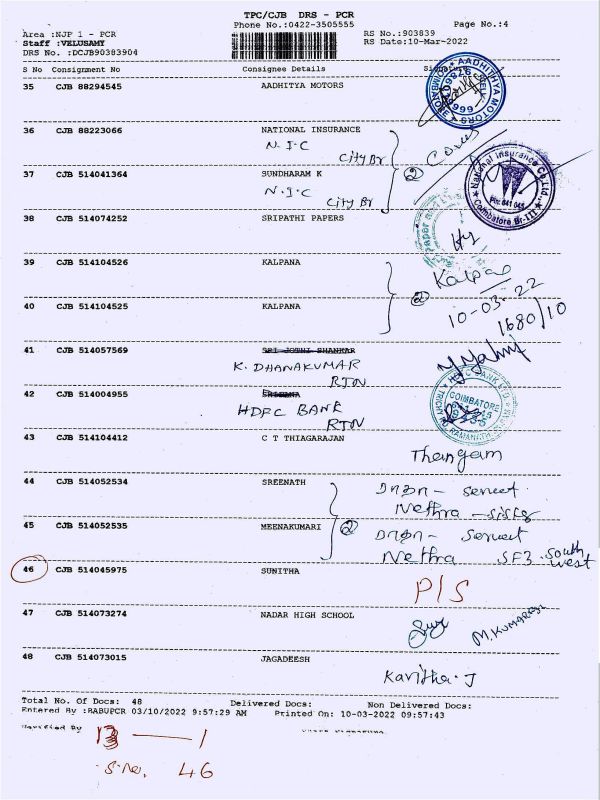 TPC/CJB DRS - PCR
Phone No.:0422-3505555
Page No.:4
Area :NJP 1 - PCR
RS No.:903839
Staff :VELUSAMY
RS Date:10-Mar-2022
DRS No. :DCJB90383904
S No Consignment No Consignee Details Signature
35 CJB 88294545 AADHITYA MOTORS
AADHITHYA MOTORS
36 CJB 88223066 NATIONAL INSURANCE
N.I.C
City Br
37 CJB 514041364 SUNDHARAM K
N.I.C
City Br
2
National Insurance Co.Ltd.,
Pin: 641 045
Coimbatore Br-III
38 CJB 514074252 SRIPATHI PAPERS
39 CJB 514104526 KALPANA
40 CJB 514104525 KALPANA
2
10-03-22
1680/10
41 CJB 514057569 SRI JOTHI SHANKAR
K. DHANAKUMAR
RTN
42 CJB 514004955
HDFC BANK
RTN
BANK LTD
COIMBATORE
43 CJB 514104412 C T THIAGARAJAN
Thangam
44 CJB 514052534 SREENATH
Nethra
45 CJB 514052535 MEENAKUMARI
2
Nethra SF3 South
west
46 CJB 514045975 SUNITHA
P/S
47 CJB 514073274 NADAR HIGH SCHOOL
48 CJB 514073015 JAGADEESH
Kavitha.J
Total No. Of Docs: 48 Delivered Docs: Non Delivered Docs:
Entered By :BABUPCR 03/10/2022 9:57:29 AM Printed On: 10-03-2022 09:57:43
S.No. 46